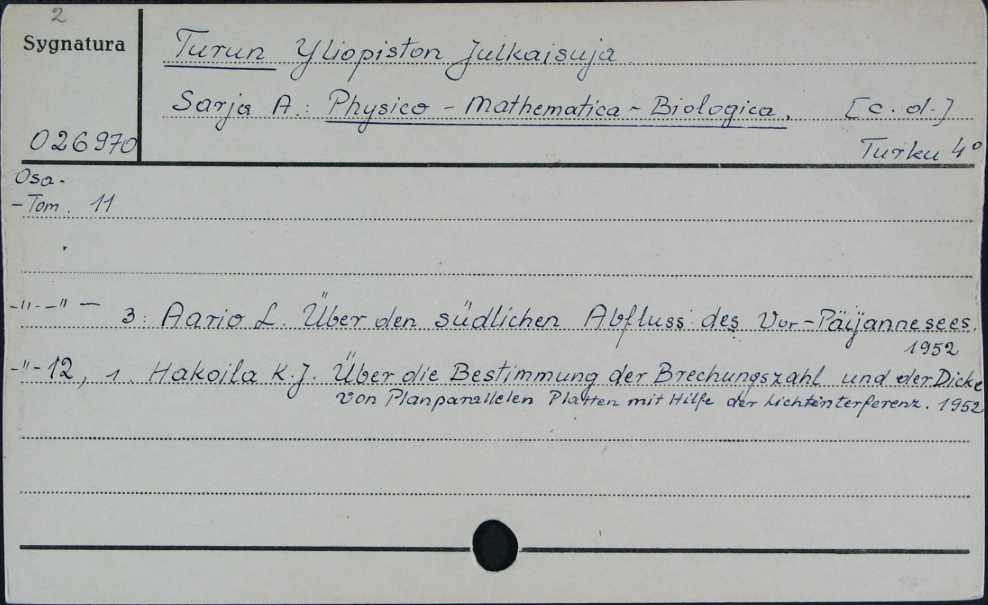 2
Sygnatura
Turun Yliopiston Julkaisuja
Sarja A.: Physico - Mathematica - Biologica. [c.d.]
026970
Turku 4°
Osa.
- Tom. 11
-"--"- 3: Aario L. Über den südlichen Abfluss des Vor-Päijännesees.
1952
-"- 12, 1. Hakoila K.J. Über die Bestimmung der Brechungszahl und der Dicke
von Planparallelen Platten mit Hilfe der Lichtinterferenz. 1952